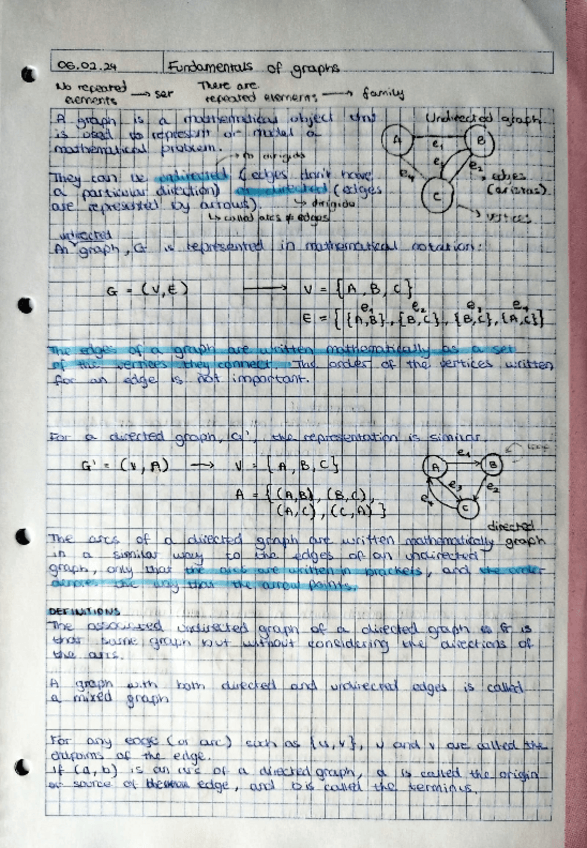 06.02.24 Fundamentals of graphs
No repeated elements → set There are repeated elements → family
A graph is a mathematical object that
is used to represent or model a
mathematical problem.
Undirected graph
A B C
e1 e2 e3 e4
edges
(aristas)
vertices
no dirigido
They can be undirected (edges don't have
a particular direction) or directed (edges
are represented by arrows).
dirigido
called arcs ≠ edges
undirected
An graph, G is represented in mathematical notation:
G = (V,E) → V = {A, B, C}
e1 e2 e3 e4
E = {{A,B}, {B,C}, {B,C}, {A,C}}
The edges of a graph are written mathematically as a set
of the vertices they connect. The order of the vertices written
for an edge is not important.
For a directed graph, G', the representation is similar.
G' = (V, A) → V = {A, B, C}
A = {(A,B), (B,C),
(A,C), (C,A)}
A B C
e1 e2 e3 e4
directed
graph
The arcs of a directed graph are written mathematically
in a similar way to the edges of an undirected
graph, only that the arcs are written in brackets, and the order
denotes the way that the arrow points.
DEFINITIONS
The associated undirected graph of a directed graph G is
that same graph but without considering the directions of
the arcs.
A graph with both directed and undirected edges is called
a mixed graph
For any edge (or arc) such as {u,v}, u and v are called the
endpoints of the edge.
If (a,b) is an arc of a directed graph, a is called the origin
or source of edge, and b is called the terminus.